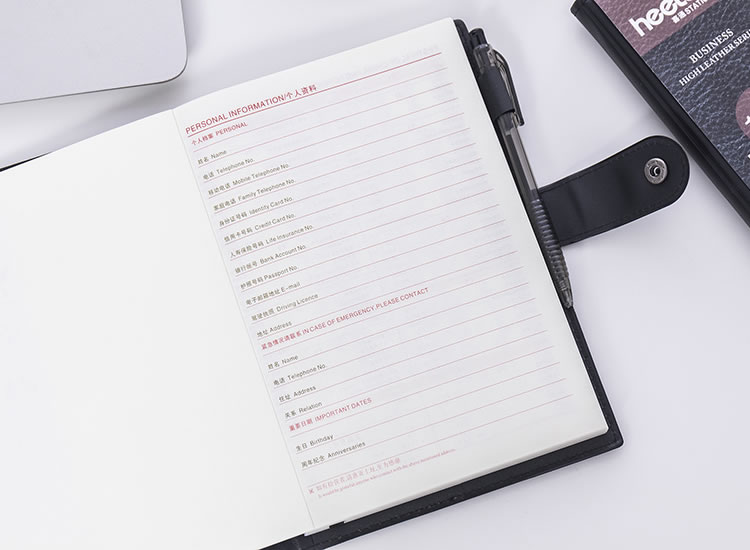 PERSONAL INFORMATION/个人资料
个人档案 PERSONAL
姓名 Name
电话 Telephone No.
移动电话 Mobile Telephone No.
家庭电话 Family Telephone No.
身份证号码 Identity Card No.
信用卡号码 Credit Card No.
人寿保险号码 Life Insurance No.
银行账号 Bank Account No.
护照号码 Passport No.
电子邮箱地址 E-mail
驾驶执照 Driving Licence
地址 Address
紧急情况请联系 IN CASE OF EMERGENCY, PLEASE CONTACT
姓名 Name
电话 Telephone No.
住址 Address
关系 Relation
重要日期 IMPORTANT DATES
生日 Birthday
周年纪念 Anniversaries
It would be grateful anyone who contact with the above mentioned address.
BUSINESS
HIGH LEATHER SERI